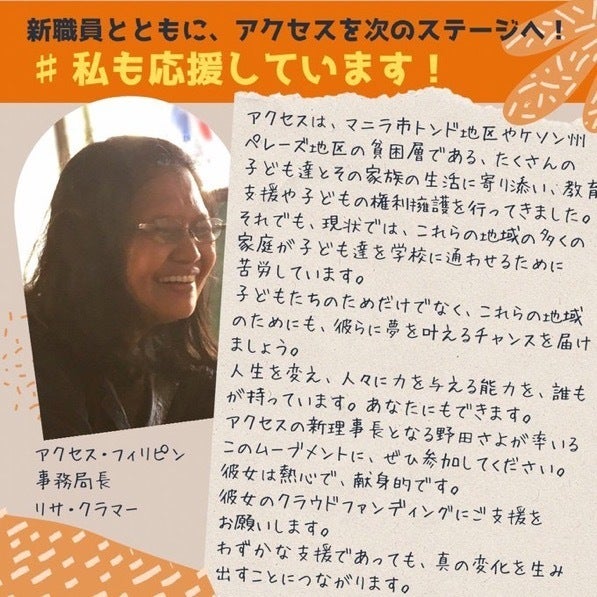 新職員とともに、アクセスを次のステージへ!
#私も応援しています!
アクセスは、マニラ市トンド地区やケソン州
ペレーズ地区の貧困層である、たくさんの
子ども達とその家族の生活に寄り添い、教育
支援や子どもの権利擁護を行ってきました。
それでも、現状では、これらの地域の多くの
家庭が子ども達を学校に通わせるために
苦労しています。
子どもたちのためだけでなく、これらの地域
のためにも、彼らに夢を叶えるチャンスを届け
ましょう。
人生を変え、人々に力を与える能力を、誰も
が持っています。あなたにもできます。
アクセスの新理事長となる野田さよが率いる
このムーブメントに、ぜひ参加してください。
彼女は熱心で、献身的です。
彼女のクラウドファンディングにご支援を
お願いします。
わずかな支援であっても、真の変化を生み
出すことにつながります。
アクセス・フィリピン
事務局長
リサ・クラマー